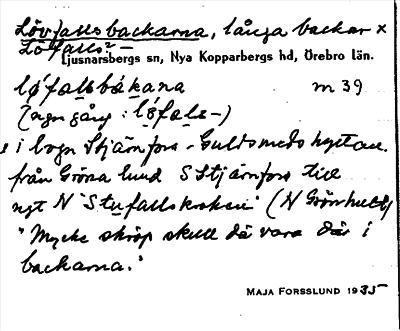 Lövfallsbackarna, långa backar x
Löfalls? –
Ljusnarsbergs sn, Nya Kopparbergs hd, Örebro län.
lófalsbákana m 39
(ngn gång: lófals–)
i vägen Stjärnfors – Guldsmedshyttan.
från Gröna lund S Stjärnfors till
ngt N "Stufallskroken" (N Grönhult)
"Mycke skröp skull dä vara där i
backarna."
MAJA FORSSLUND 1935